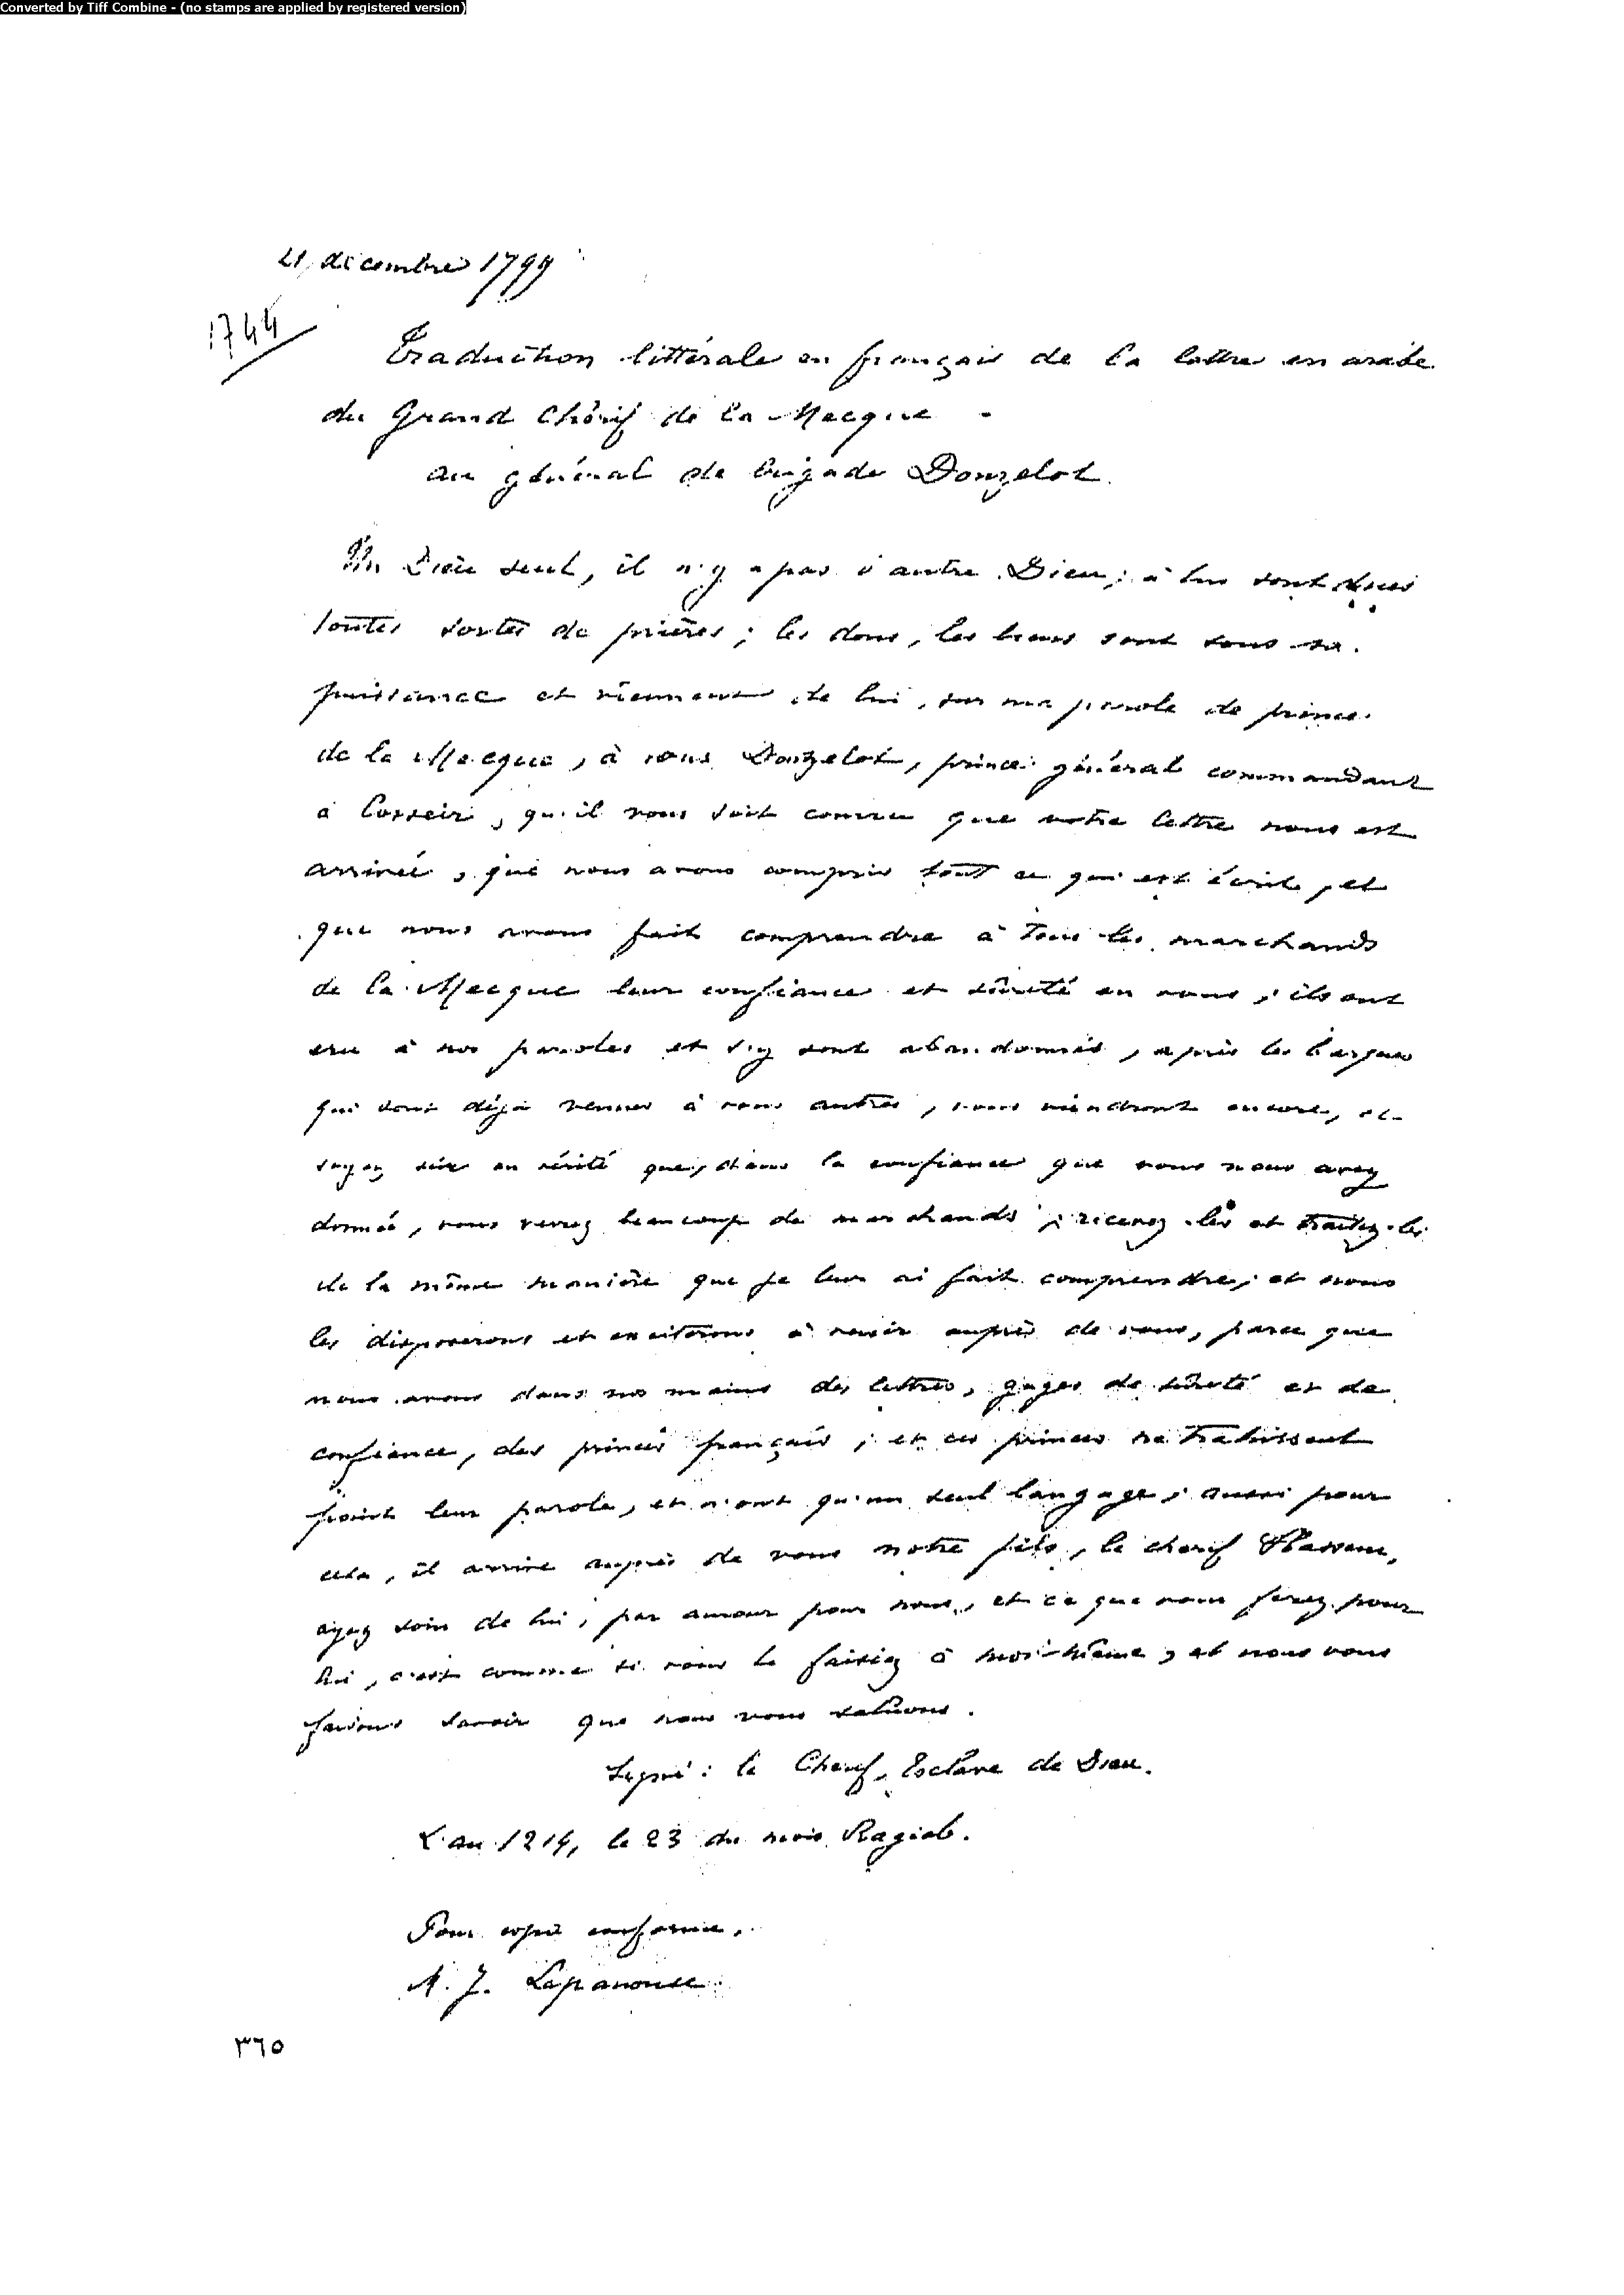 Converted by Tiff Combine - (no stamps are applied by registered version)
21 décembre 1799
1744
Traduction littérale en français de la lettre en arabe
du Grand Chérif de la Mecque -
au général de brigade Donzelot.
Un Dieu seul, il n'y a pas d'autre Dieu ; à lui sont dues
toutes sortes de prières ; les dons, les biens sont sous sa
puissance et viennent de lui, sur ma parole de prince
de la Mecque, à vous Donzelot, prince général commandant
à Cosseir, qu'il vous soit connu que votre lettre nous est
arrivée, que nous avons compris tout ce qui est écrit, et
que nous avons fait comprendre à tous les marchands
de la Mecque leur confiance et sûreté en vous ; ils ont
cru à nos paroles et s'y sont abandonnés, après les barques
qui sont déjà venues à vous autres, vous viendront encore, et
soyez sûr en vérité que, dans la confiance que vous nous avez
donnée, vous verrez beaucoup de marchands ; recevez-les et traitez-les
de la même manière que je leur ai fait comprendre, et nous
les disposerons et exciterons à venir auprès de vous, parce que
nous avons dans nos mains des lettres, gages de sûreté et de
confiance, des princes français ; et ces princes ne trahissent
point leur parole, et n'ont qu'un seul langage ; aussi pour
cela, il arrive auprès de vous notre fils, le chérif Hassan,
ayez soin de lui, par amour pour nous, et ce que vous ferez pour
lui, c'est comme si vous le faisiez à moi-même, et nous vous
faisons savoir que nous vous saluons.
Signé : le Chérif, Esclave de Dieu.
L'an 1214, le 23 du mois Ragiab.
Pour copie conforme,
A. J. Lapanouse
٣٦٥